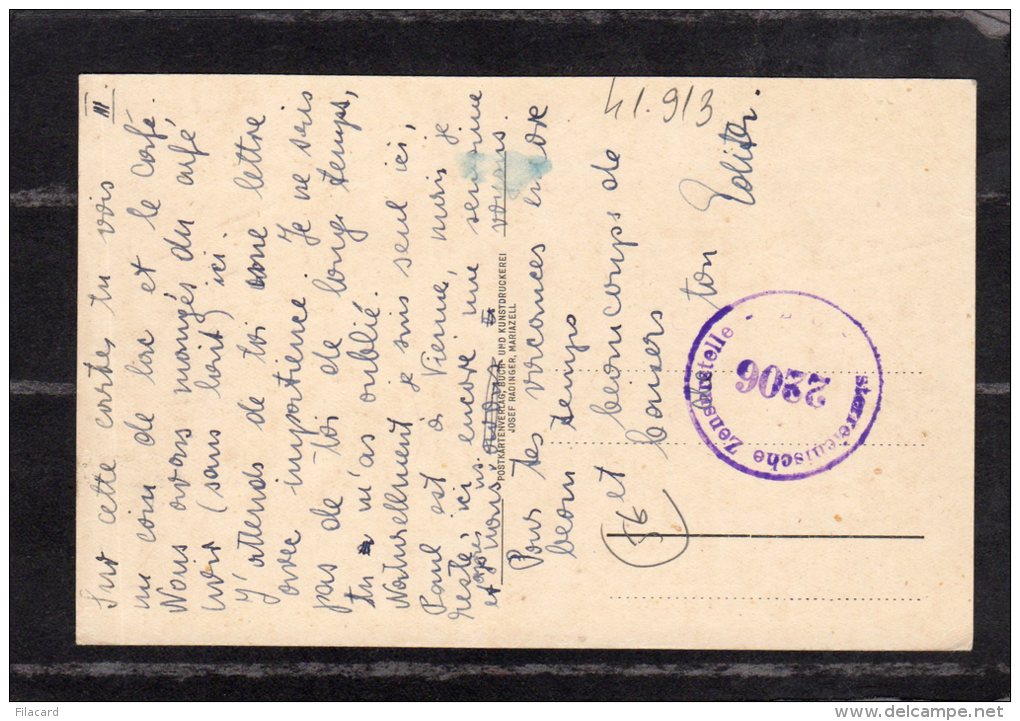 III.
Sur cette cartes tu vois
un coin de lac et le café.
Nous avons mangés du café
noir (sans lait) ici
J'attends de toi une lettre
avec importience. Je ne sais
pas de toi de longs temps,
tu n'as oublié.
Naturellement je suis seul ici,
Paul est à Vienne, mais je
reste ici encore une semaine
et après nous nous voyons.
Pour tes vorcances encore
beau temps
et beaucoups de
baisers
ton Edith.
41.913
56
POSTKARTENVERLAG, BUCH- UND KUNSTDRUCKEREI
JOSEF RADINGER, MARIAZELL
sterreichische Zensurstelle
2206
Filacard
delcampe.net